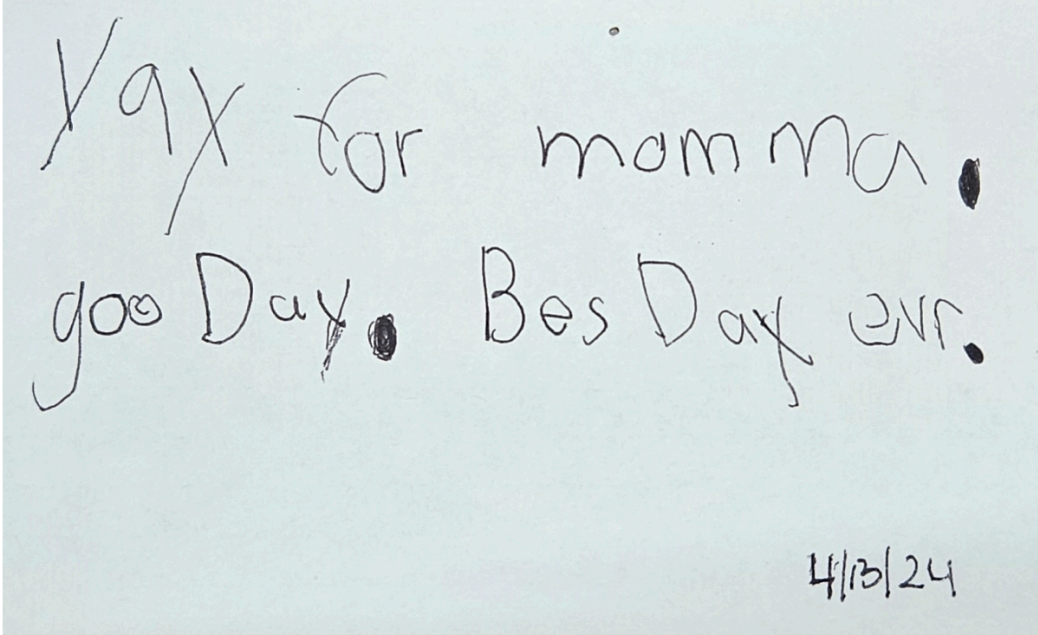 Yay for momma.
goo Day. Bes Day evr.
4/13/24